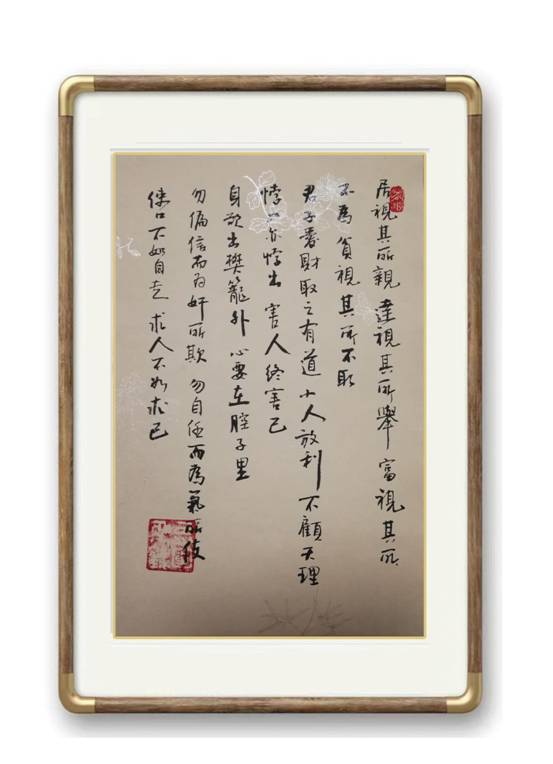 居視其所親 達視其所舉 富視其所
不為 貧視其所不取
君子愛財取之有道 小人放利不顧天理
悖入亦悖出 害人終害己
身欲出樊籠外 心要在腔子里
勿偏信而为奸所欺 勿自任而為氣所使
使口不如自走 求人不如求己